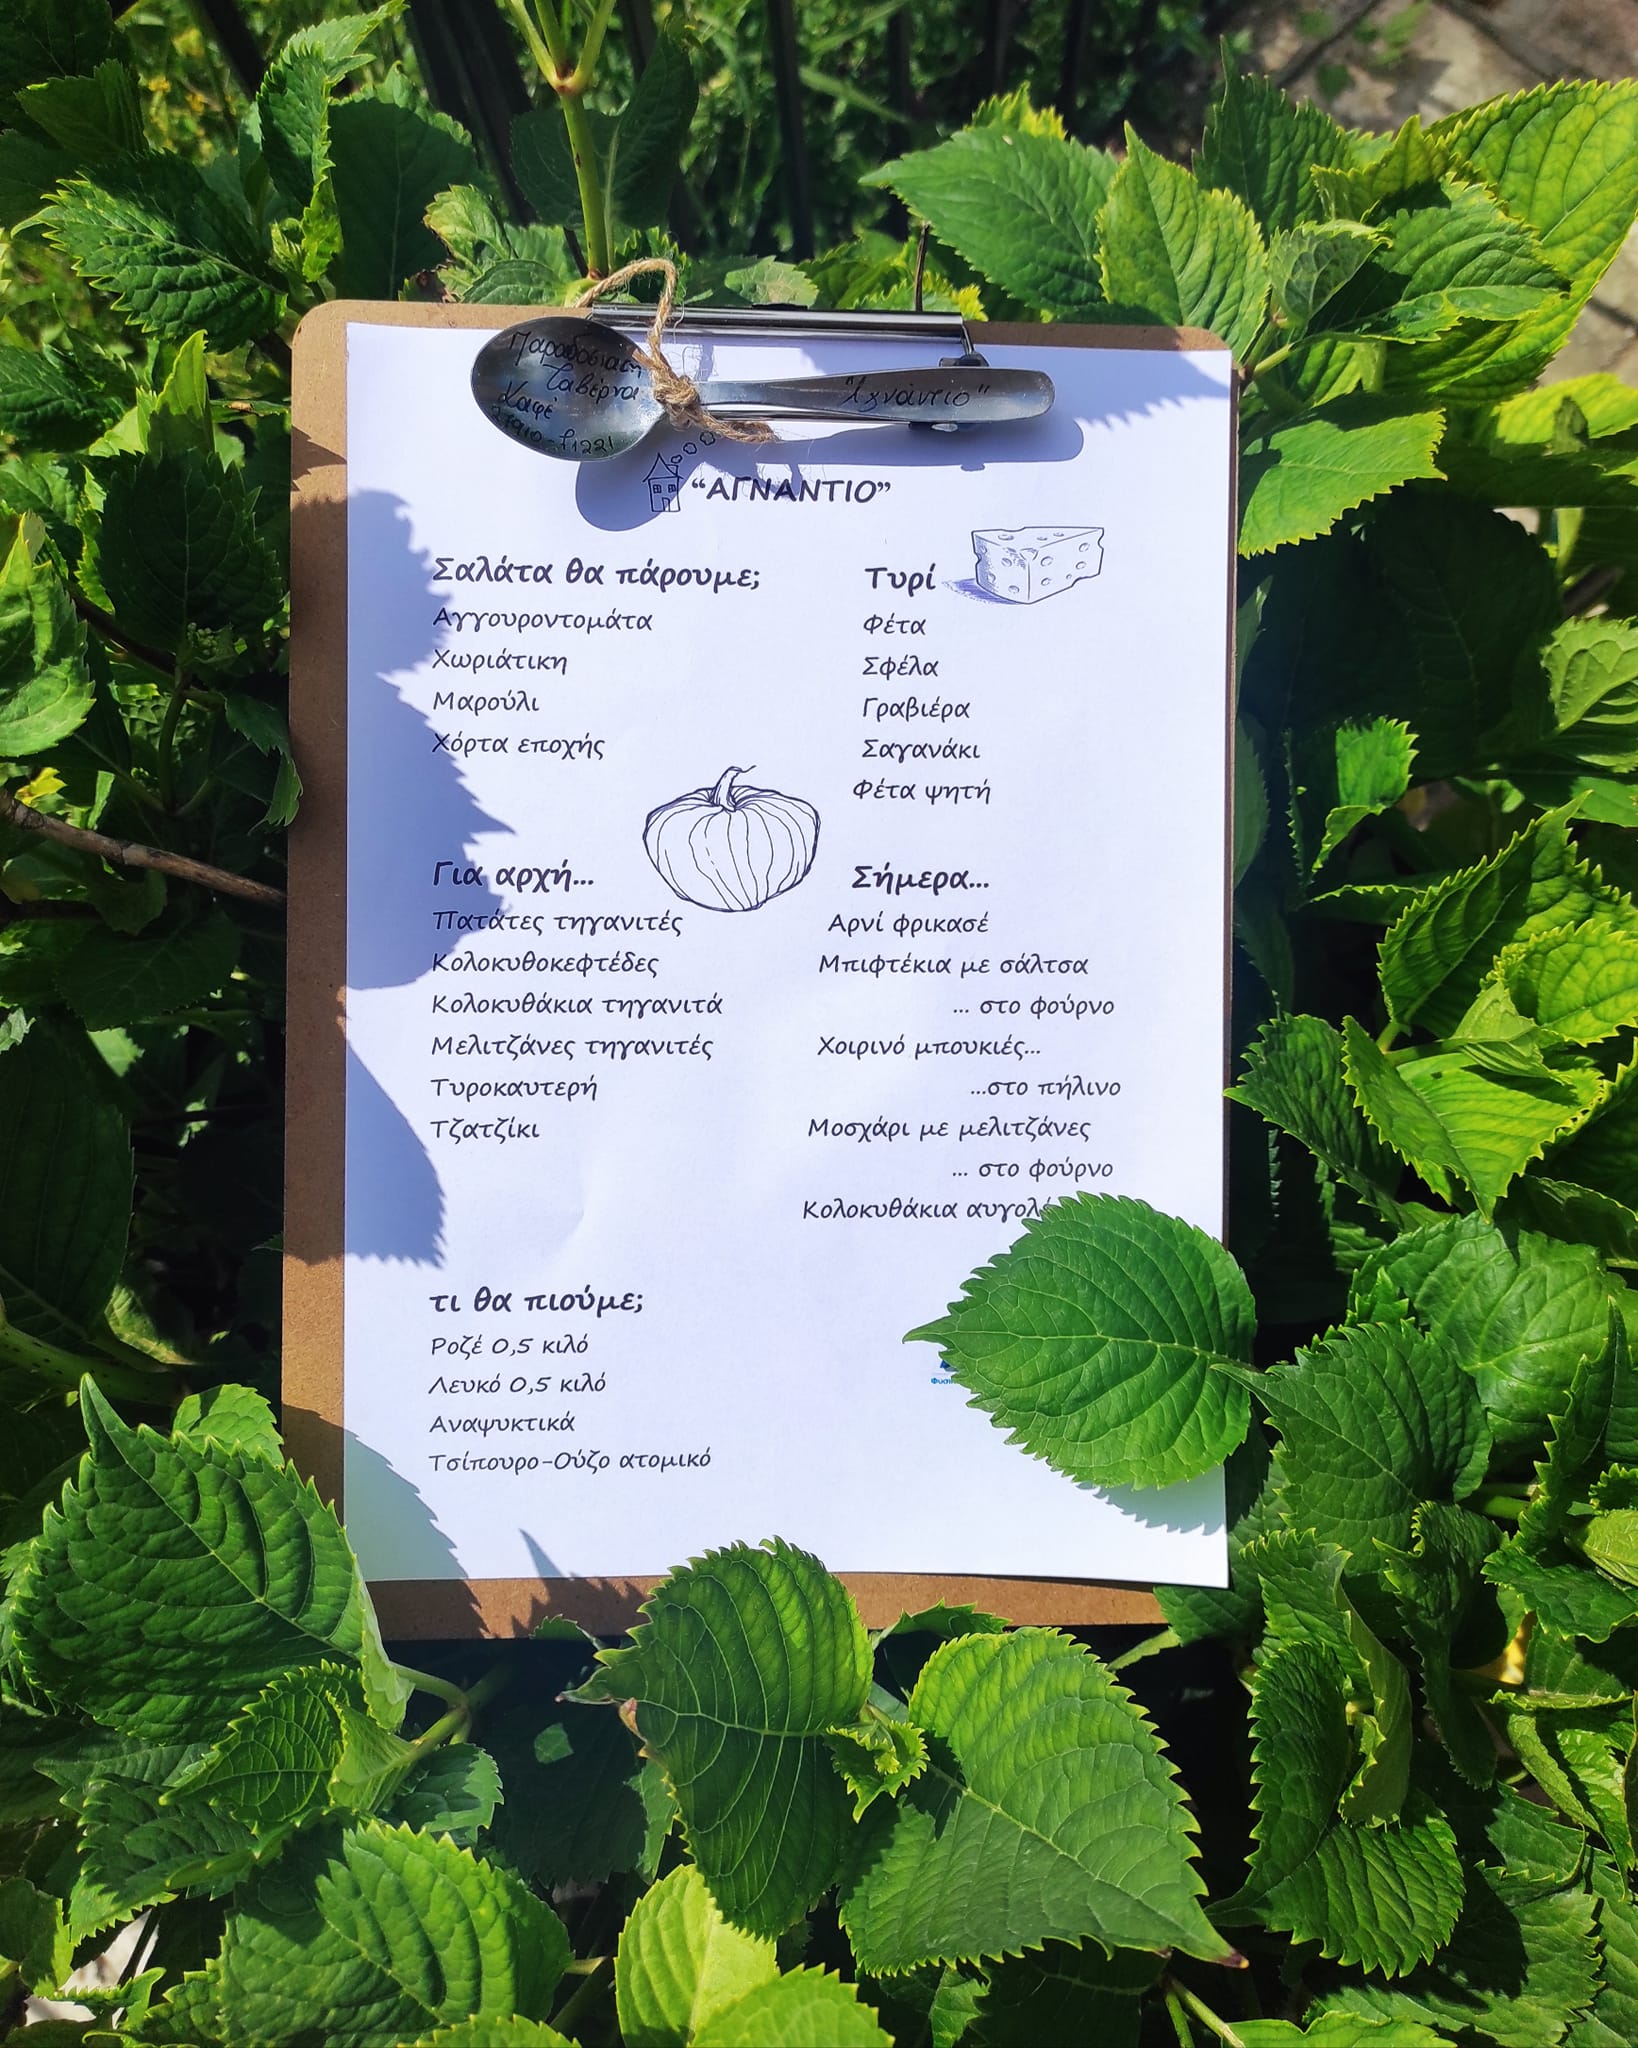 Παραδοσιακή
Ταβέρνα
Καφέ
"Αγνάντιο"
“ΑΓΝΑΝΤΙΟ”
Σαλάτα θα πάρουμε;
Αγγουροντομάτα
Χωριάτικη
Μαρούλι
Χόρτα εποχής
Τυρί
Φέτα
Σφέλα
Γραβιέρα
Σαγανάκι
Φέτα ψητή
Για αρχή...
Πατάτες τηγανιτές
Κολοκυθοκεφτέδες
Κολοκυθάκια τηγανιτά
Μελιτζάνες τηγανιτές
Τυροκαυτερή
Τζατζίκι
Σήμερα...
Αρνί φρικασέ
Μπιφτέκια με σάλτσα
... στο φούρνο
Χοιρινό μπουκιές...
...στο πήλινο
Μοσχάρι με μελιτζάνες
... στο φούρνο
Κολοκυθάκια
τι θα πιούμε;
Ροζέ 0,5 κιλό
Λευκό 0,5 κιλό
Αναψυκτικά
Τσίπουρο-Ούζο ατομικό